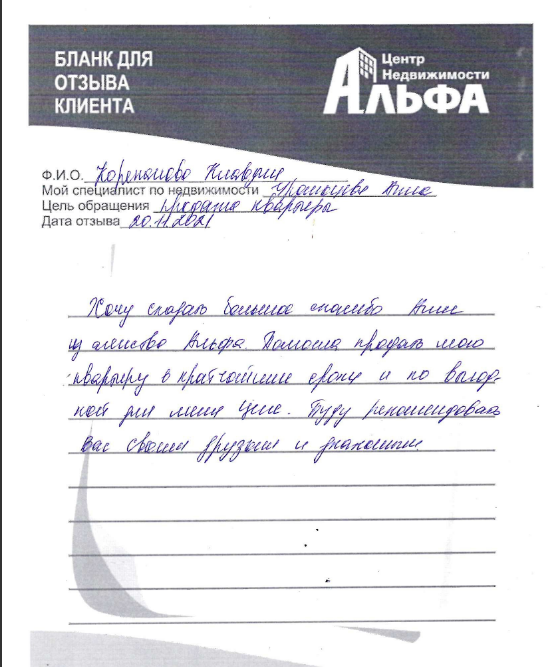 БЛАНК ДЛЯ
ОТЗЫВА
КЛИЕНТА
Центр
Недвижимости
АЛЬФА
Ф.И.О. Клавдия
Мой специалист по недвижимости Анна
Цель обращения продажа квартиры
Дата отзыва 20.11.2021
Хочу сказать большое спасибо Анне
из агенство Альфа. Помогла продать мою
квартиру в кратчайшие сроки и по выгод-
ной для меня цене. Буду рекомендовать
Вас своим друзьям и знакомым